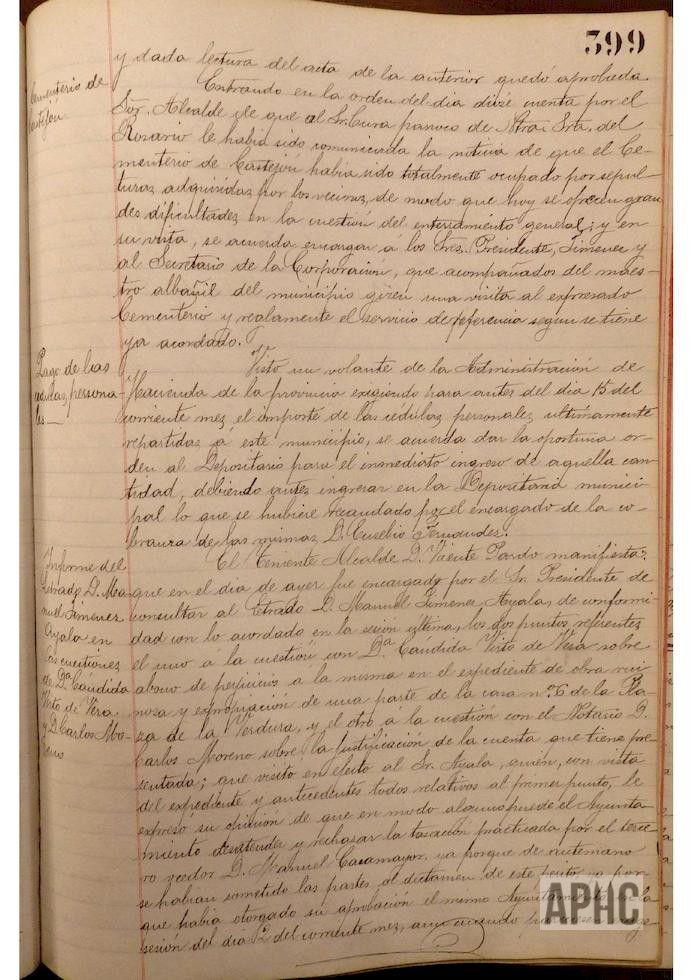 399
y dada lectura del acta de la anterior quedó aprobada.
Cementerio de
Castejón
Entrando en la orden del dia dióse cuenta por el
Sor. Alcalde de que al Sr. Cura parroco de Ntra. Sra. del
Rosario le habia sido comunicada la noticia de que el Ce-
menterio de Castejón habia sido totalmente ocupado por sepul-
turas adquiridas por los vecinos, de modo que hoy se ofrecen gran
des dificultades en la cuestión del enterramiento general; y en
su vista, se acuerda encargar á los Sres. Presidente, Jimenez y
al Secretario de la Corporación, que acompañados del maes-
tro albañil del municipio giren una visita al expresado
Cementerio y reglamente el servicio de referencia segun se tiene
ya acordado.
Pago de las
cedulas persona-
les
Visto un volante de la Administración de
Hacienda de la provincia exigiendo para antes del dia 15 del
corriente mes, el importe de las cédulas personales ultimamente
repartidas á este municipio, se acuerda dar la oportuna or-
den al Depositario para el inmediato ingreso de aquella can-
tidad, debiendo antes ingresar en la Depositaria munici-
pal lo que se hubiere recaudado por el encargado de la co-
branza de las mismas D. Eusebio Fernandez.
Informe del
letrado D. Ma-
nuel Jimenez
Ayala en
las cuestiones
de Dª Cándida
Visto de Vera
y D. Carlos Mo-
reno
El Teniente Alcalde D. Vicente Pardo manifiesta:
que en el dia de ayer fue encargado por el Sr. Presidente de
consultar al letrado D. Manuel Jimenez Ayala, de conformi-
dad con lo acordado en la sesión última, los dos puntos referentes
el uno á la cuestión con Dª Candida Visto de Vera sobre
abono de perjuicios á la misma en el expediente de obra rui
nosa y expropiación de una parte de la casa nº 6 de la Pla-
za de la Verdura, y el otro á la cuestión con el Notario D.
Carlos Moreno sobre la justificación de la cuenta que tiene pre-
sentada; que visitó en efecto al Sr. Ayala, quién, con vista
del expediente y antecedentes todos relativos al primer punto, le
expresó su opinión de que en modo alguno puede el Ayunta-
miento desatender y rechazar la tasación practicada por el terce-
ro perito D. Manuel Casamayor, ya porque de antemano
se habian sometido las partes al dictamen de este perito, ya por
que habia otorgado su aprobación el mismo Ayuntamiento en la
sesión del dia 2 del corriente mes, aun cuando
APHC